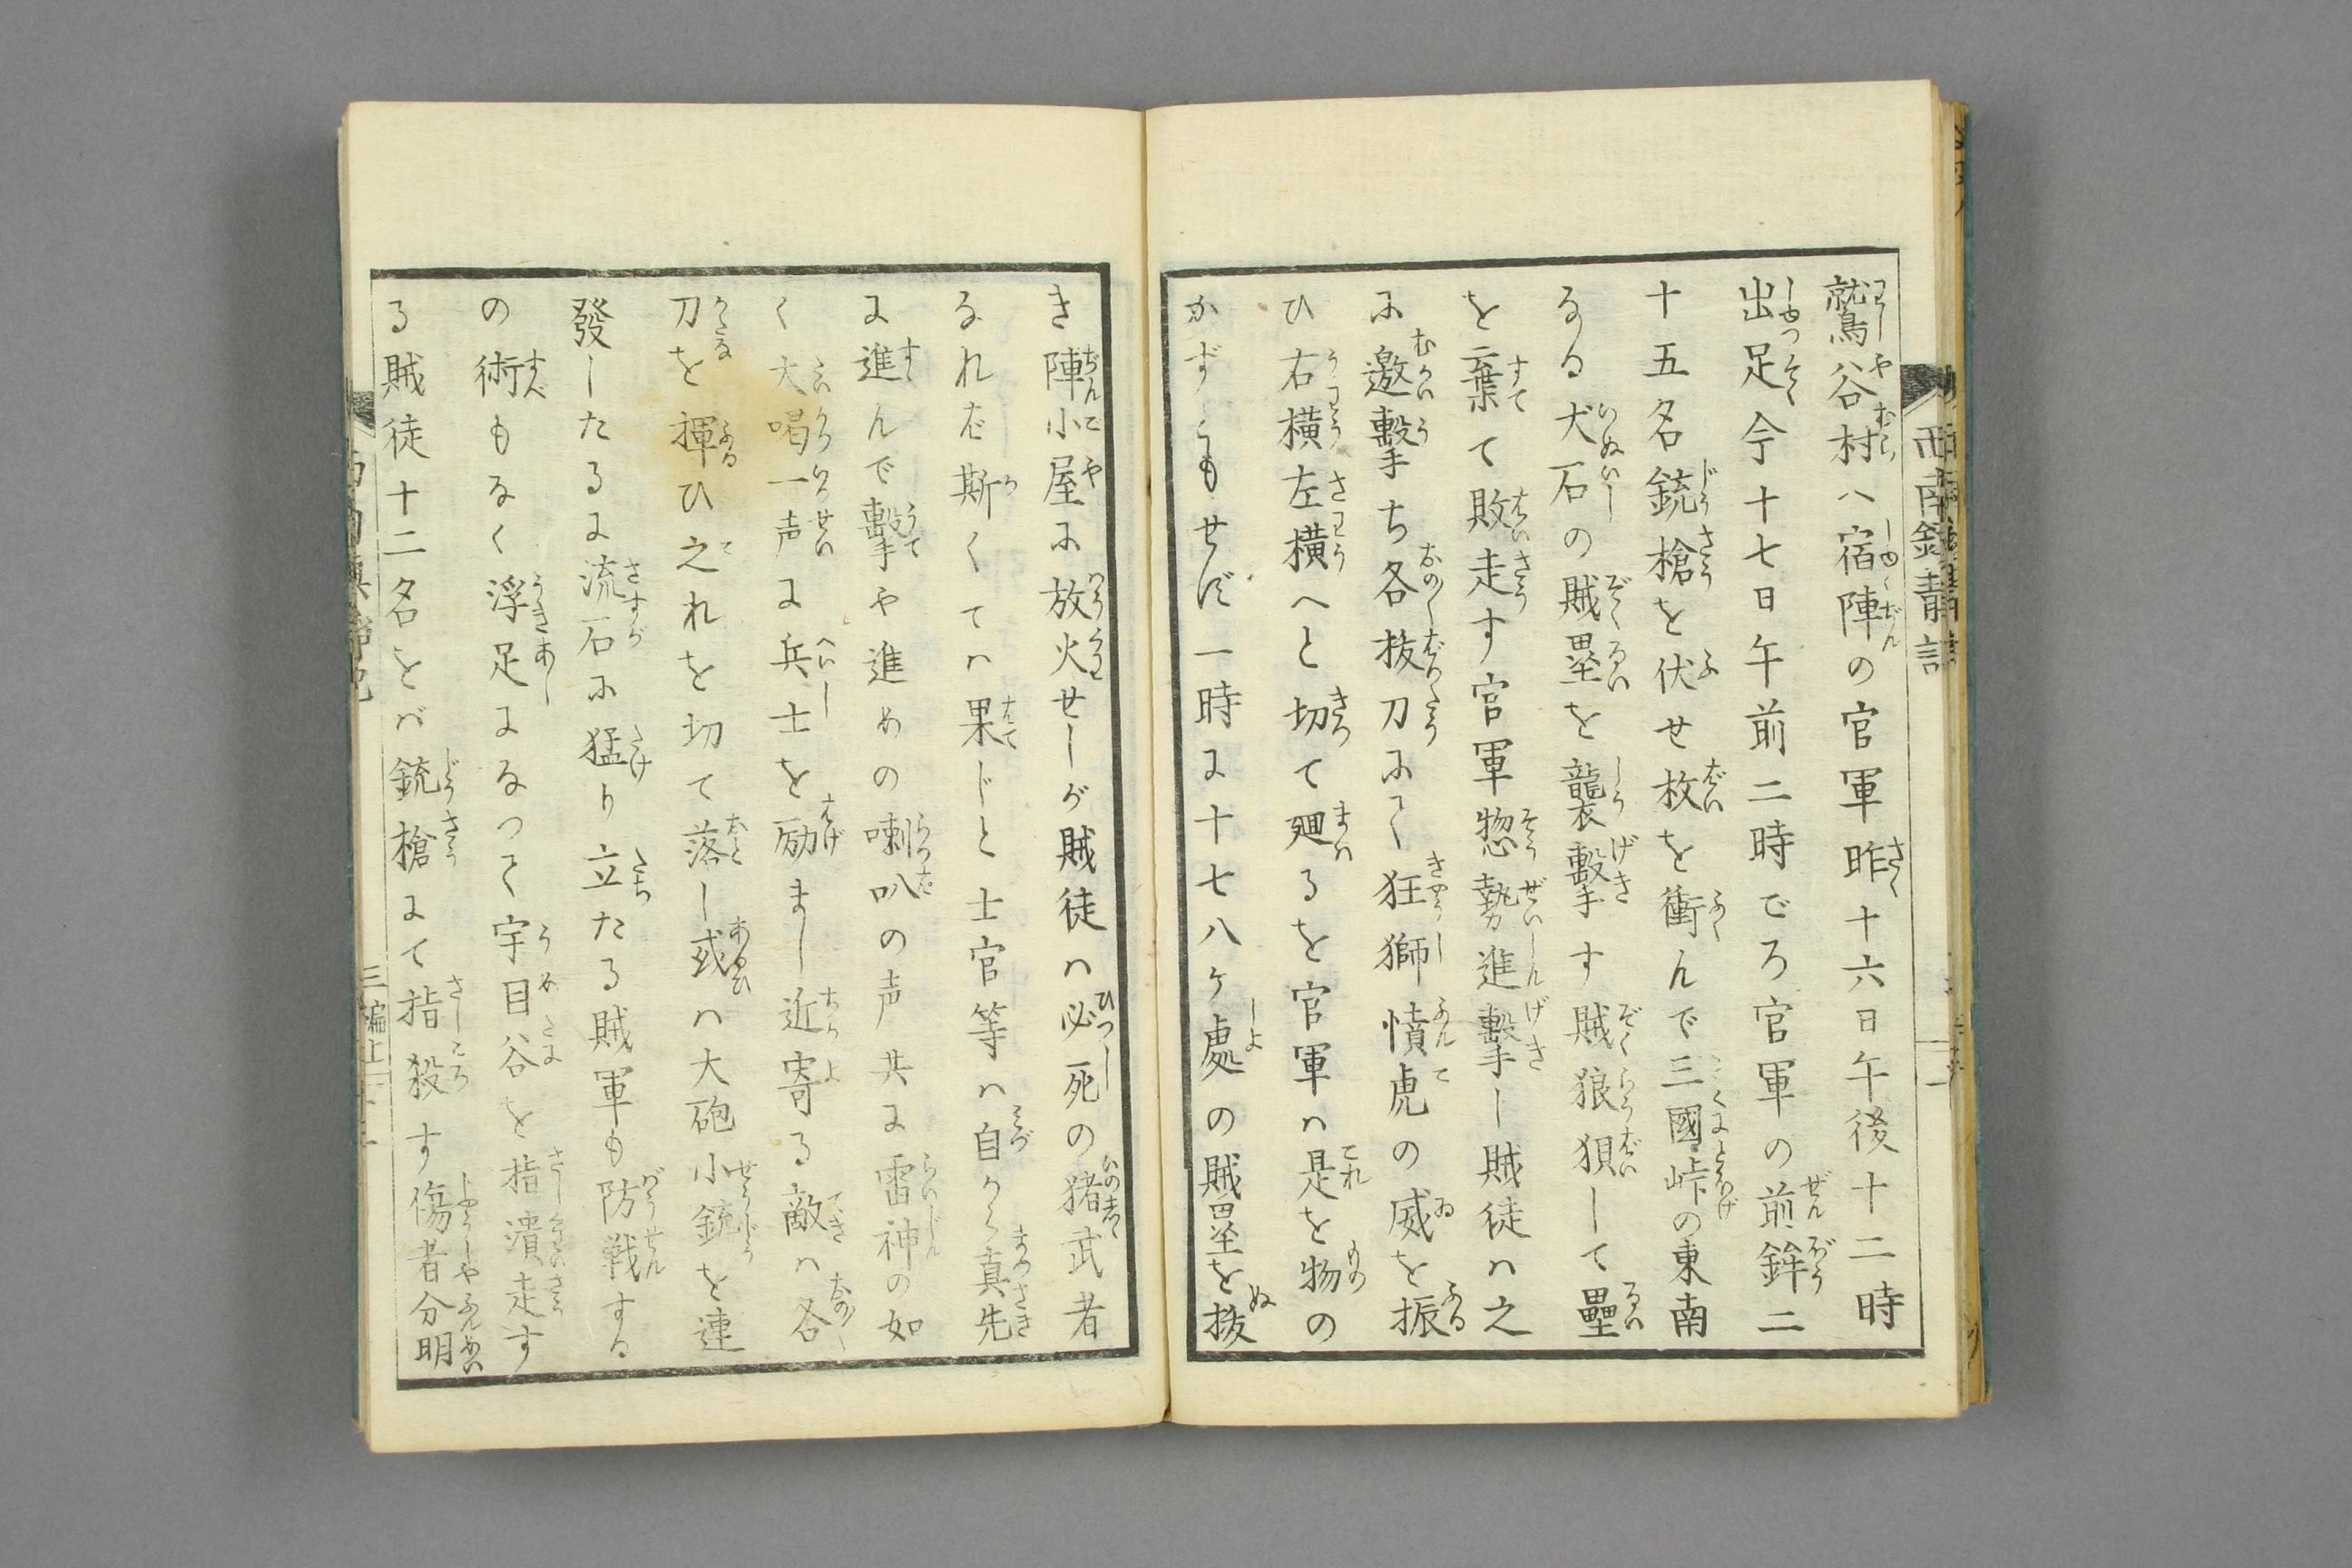 鷲谷村ハ宿陣の官軍昨十六日午後十二時
出足今十七日午前二時ごろ官軍の前鉾二
十五名銃槍を伏せ枚を衝んで三國峠の東南
なる犬石の賊塁を襲撃す賊狼狽して壘
を棄て敗走す官軍惣勢進撃し賊徒ハ之
に邀撃ち各抜刀にて狂獅憤虎の威を振
ひ右横左横へと切て廻るを官軍ハ是を物の
かずともせず一時に十七八ケ處の賊塁を抜
き陣小屋に放火せしが賊徒ハ必死の猪武者
なれバ斯くてハ果じと士官等ハ自から真先
に進んで撃や進めの喇叭の声共に雷神の如
く大喝一声に兵士を励まし近寄る敵ハ各
刀を揮ひ之れを切て落し或ハ大砲小銃を連
發したるに流石に猛り立たる賊軍も防戦する
の術もなく浮足になつて宇目谷を指潰走す
る賊徒十二名をバ銃槍にて指殺す傷者分明
三編上